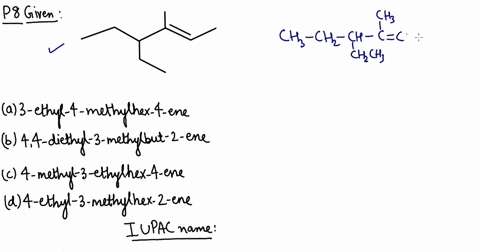 P8 Given:
CH3
CH3-CH2-CH-C=C
CH2CH3
(a) 3-ethyl-4-methylhex-4-ene
(b) 4,4-diethyl-3-methylbut-2-ene
(c) 4-methyl-3-ethylhex-4-ene
(d) 4-ethyl-3-methylhex-2-ene
IUPAC name: